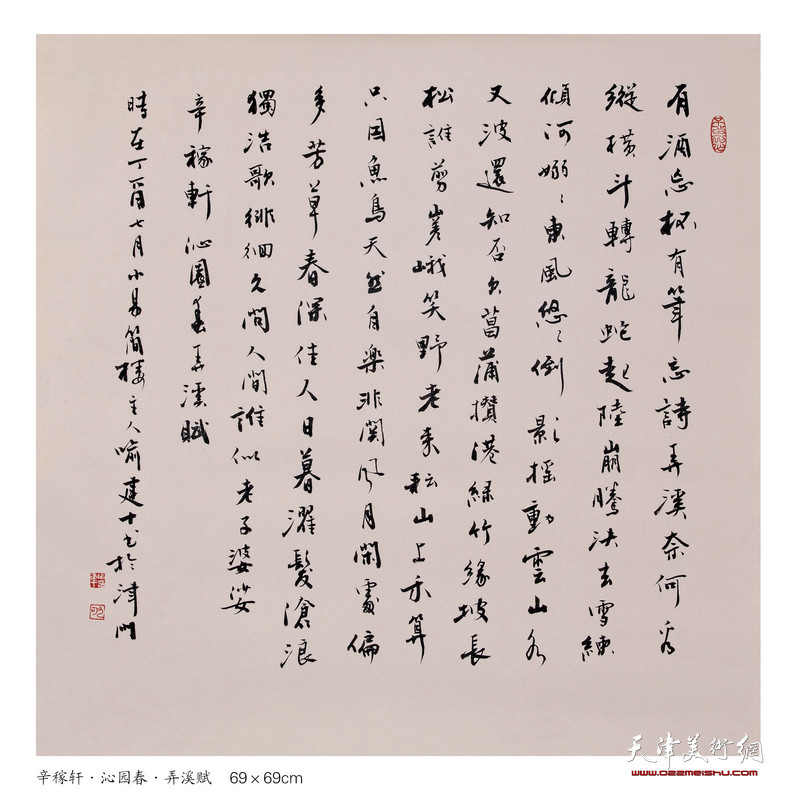 有酒忘杯有筆忘詩弄溪奈何看
縱橫斗轉龍蛇起陸崩騰決去雪練
傾河嫋〻東風悠〻倒影搖動雲山水
又波還知否欠菖蒲攢港綠竹緣坡長
松誰剪嵯峨笑野老來耘山上禾算
只因魚鳥天然自樂非關風月閑處偏
多芳草春深佳人日暮濯髮滄浪
獨浩歌徘徊久問人間誰似老子婆娑
辛稼軒沁園春弄溪賦
時在丁酉七月小易簡樓主人喻建十书於津門
辛稼轩·沁园春·弄溪赋 69×69cm
天津美術網
www.022meishu.com